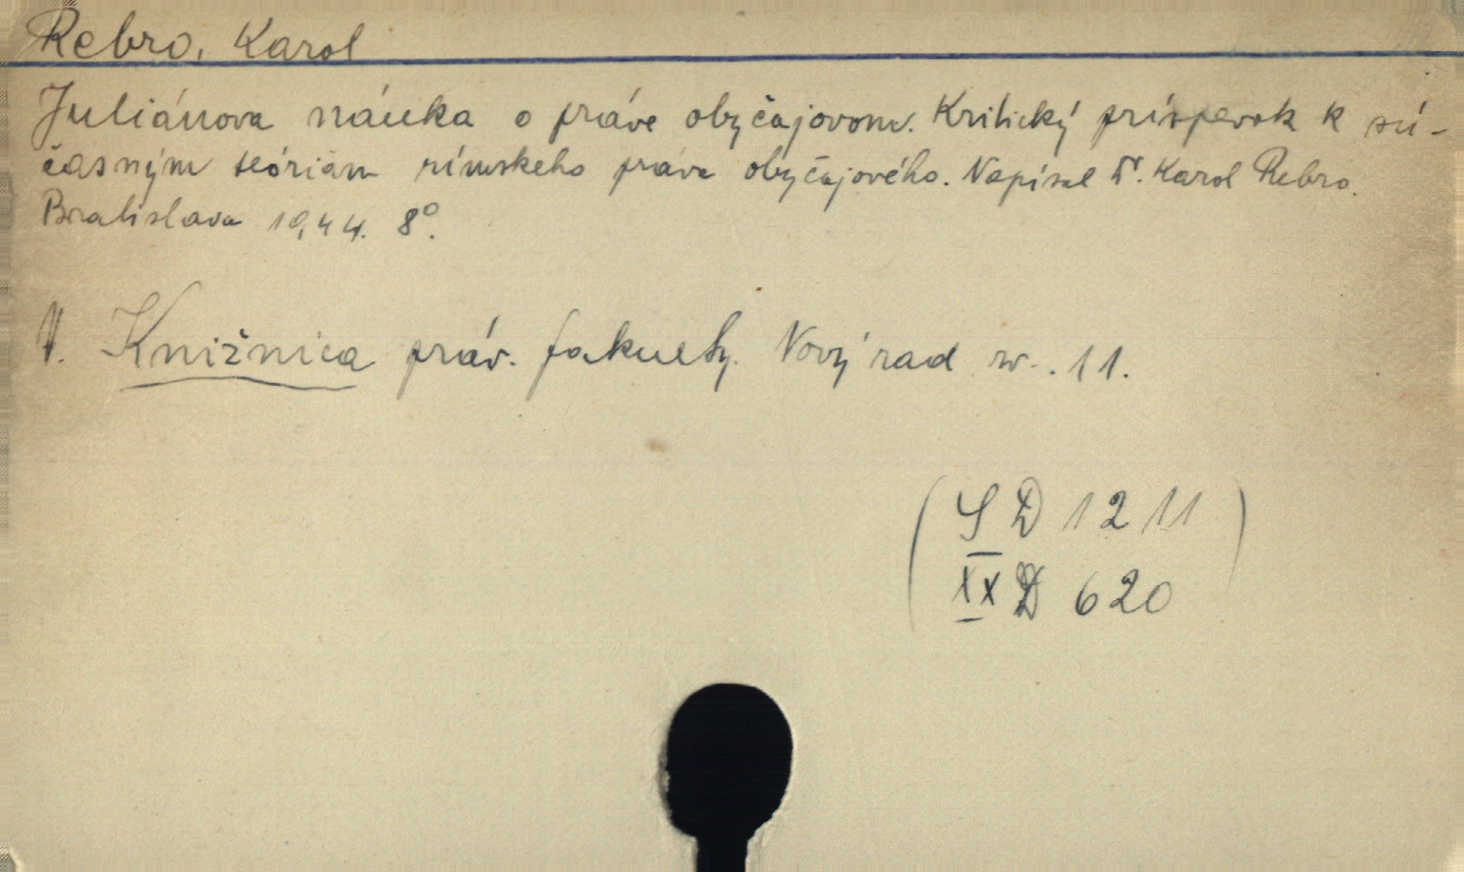 Rebro, Karol
Juliánova náuka o práve obyčajovom. Kritický príspevok k sú-
časným teóriám rímskeho práva obyčajového. Napísal Dr. Karol Rebro.
Bratislava 1944. 8°.
V. Knižnica práv. fakulty. Nový rad sv. 11.
( SD 1211 )
XX D 620